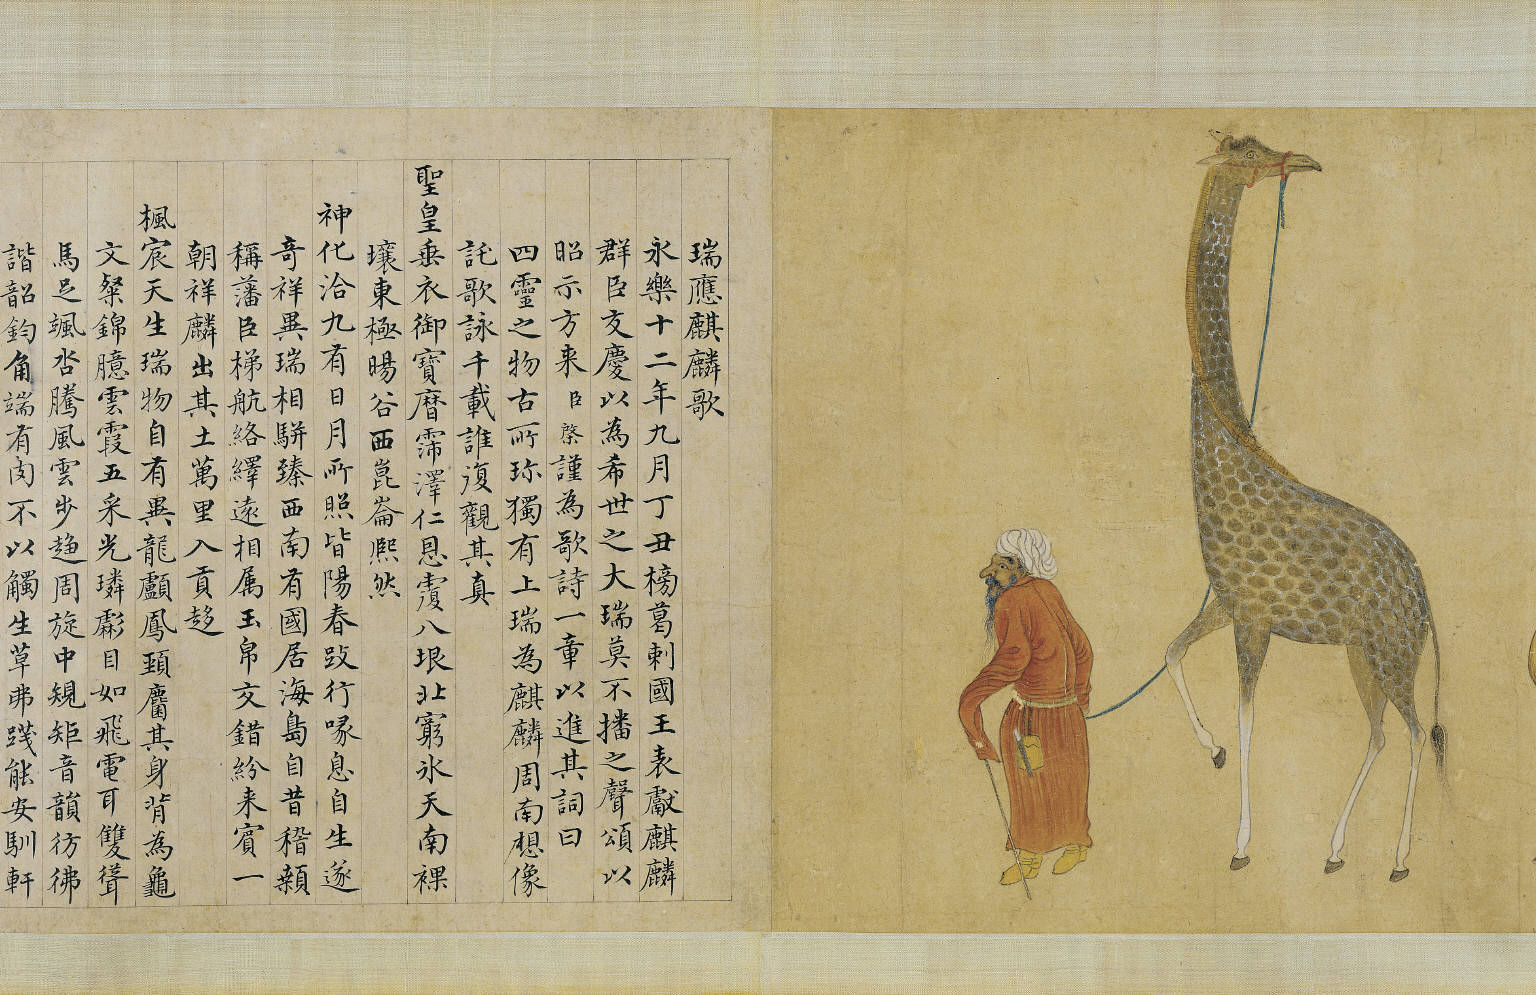 瑞應麒麟歌
永樂十二年九月丁丑榜葛剌國王表獻麒麟
群臣交慶以為希世之大瑞莫不播之聲頌以
昭示方来臣棨謹為歌詩一章以進其詞曰
四靈之物古所珎獨有上瑞為麒麟周南想像
託歌詠千載誰復觀其真
聖皇垂衣御寶曆霈澤仁恩覆八垠北窮氷天南裸
壤東極暘谷西崑崙熈然
神化洽九有日月所照皆陽春跂行喙息自生遂
竒祥異瑞相駢臻西南有國居海島自昔稽顙
稱藩臣梯航絡繹遠相属玉帛交錯紛来賓一
朝祥麟出其土萬里入貢趍
楓宸天生瑞物自有異龍顱鳳頸麕其身背為龜
文粲錦臆雲霞五采光璘彪目如飛電耳雙聳
馬足颯沓騰風雲步趍周旋中規矩音韻彷彿
諧韶鈞角端有肉不以觸生草弗踐能安馴軒